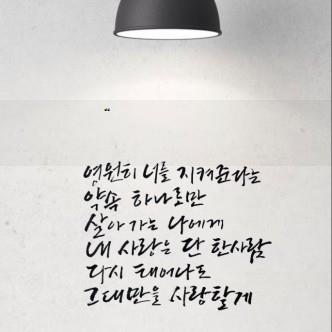 “
영원히 너를 지켜준다는
약속 하나로만
살아 가는 나에게
내 사랑은 단 한사람
다시 태어나도
그대만을 사랑할게